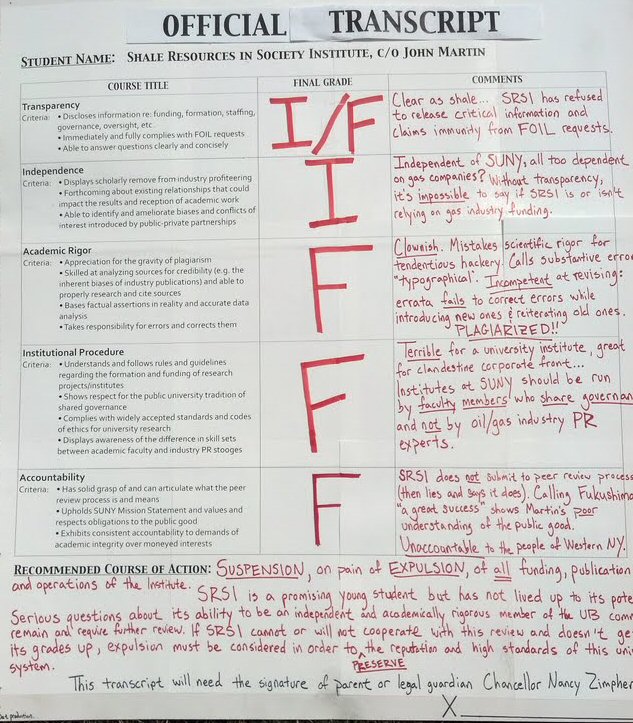 OFFICIAL TRANSCRIPT
STUDENT NAME: SHALE RESOURCES IN SOCIETY INSTITUTE, C/O JOHN MARTIN
COURSE TITLE
FINAL GRADE
COMMENTS
Transparency
Criteria: • Discloses information re: funding, formation, staffing,
governance, oversight, etc.
• Immediately and fully complies with FOIL requests
• Able to answer questions clearly and concisely
I/F
Clear as shale... SRSI has refused
to release critical information and
claims immunity from FOIL requests.
Independence
Criteria: • Displays scholarly remove from industry profiteering
• Forthcoming about existing relationships that could
impact the results and reception of academic work
• Able to identify and ameliorate biases and conflicts of
interest introduced by public-private partnerships
I
Independent of SUNY, all too dependent
on gas companies? Without transparency,
it's impossible to say if SRSI is or isn't
relying on gas industry funding.
Academic Rigor
Criteria: • Appreciation for the gravity of plagiarism
• Skilled at analyzing sources for credibility (e.g. the
inherent biases of industry publications) and able to
properly research and cite sources
• Bases factual assertions in reality and accurate data
analysis
• Takes responsibility for errors and corrects them
F
Clownish. Mistakes scientific rigor for
tendentious hackery. Calls substantive error
"typographical". Incompetent at revising:
errata fails to correct errors while
introducing new ones & reiterating old ones.
PLAGIARIZED!!
Institutional Procedure
Criteria: • Understands and follows rules and guidelines
regarding the formation and funding of research
projects/institutes
• Shows respect for the public university tradition of
shared governance
• Complies with widely accepted standards and codes
of ethics for university research
• Displays awareness of the difference in skill sets
between academic faculty and industry PR stooges
F
Terrible for a university institute, great
for clandestine corporate front...
Institutes at SUNY should be run
by faculty members who share governan
and not by oil/gas industry PR
experts.
Accountability
Criteria: • Has solid grasp of and can articulate what the peer
review process is and means
• Upholds SUNY Mission Statement and values and
respects obligations to the public good
• Exhibits consistent accountability to demands of
academic integrity over moneyed interests
F
SRSI does not submit to peer review process
(then lies and says it does). Calling Fukushima
"a great success" shows Martin's poor
understanding of the public good.
Unaccountable to the people of Western NY.
RECOMMENDED COURSE OF ACTION: SUSPENSION, on pain of EXPULSION, of all funding, publication
and operations of the Institute.
SRSI is a promising young student but has not lived up to its pote
Serious questions about its ability to be an independent and academically rigorous member of the UB comm
remain and require further review. If SRSI cannot or will not cooperate with this review and doesn't ge
its grades up, expulsion must be considered in order to ^ the reputation and high standards of this uni
PRESERVE
system.
This transcript will need the signature of parent or legal guardian Chancellor Nancy Zimpher
X
production